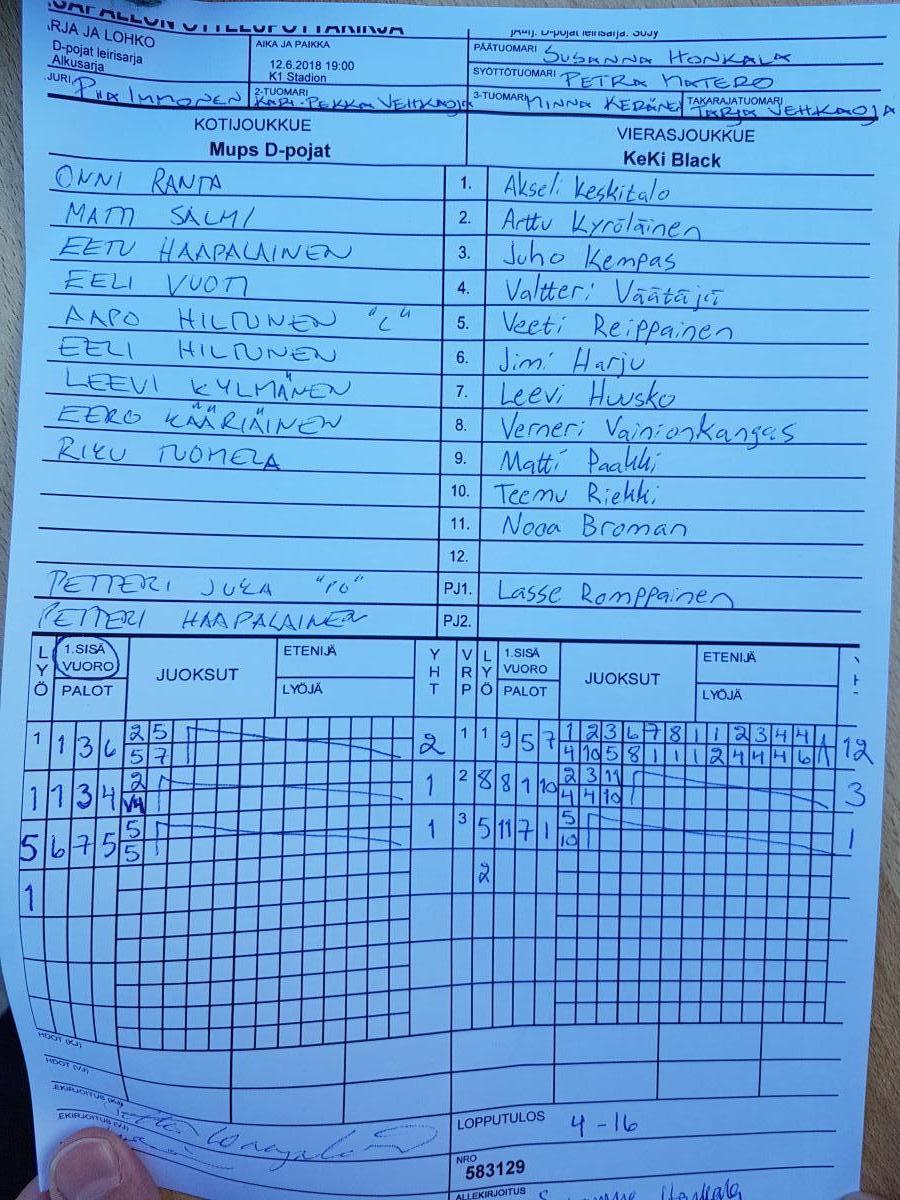 D-pojat leirisarja. SoJy
ARJA JA LOHKO
D-pojat leirisarja
Alkusarja
AIKA JA PAIKKA
12.6.2018 19:00
K1 Stadion
PÄÄTUOMARI SUSANNA HONKALA
SYÖTTÖTUOMARI PETRA MATERO
JURI PIIA IMMONEN
2-TUOMARI KARI-PEKKA VEHKAOJA
3-TUOMARI MINNA KERÄNE
TAKARAJATUOMARI TARJA VEHKAOJA
KOTIJOUKKUE
Mups D-pojat
VIERASJOUKKUE
KeKi Black
ONNI RANTA 1. Akseli Keskitalo
MATTI SALMI 2. Arttu Kyröläinen
EETU HAAPALAINEN 3. Juho Kempas
EELI VUOTI 4. Valtteri Väätäjä
AAPO HILTUNEN "C" 5. Veeti Reippainen
EELI HILTUNEN 6. Jimi Harju
LEEVI KYLMÄNEN 7. Leevi Huusko
EERO KÄÄRIÄINEN 8. Verneri Vainionkangas
RIKU TUOMELA 9. Matti Paakki
10. Teemu Riekki
11. Nooa Broman
12.
PETTERI JUKA "PO" PJ1. Lasse Romppainen
PETTERI HAAPALAINEN PJ2.
LYÖ 1.SISÄ VUORO PALOT JUOKSUT ETENIJÄ LYÖJÄ YHT VRP LYÖ 1.SISÄ VUORO PALOT JUOKSUT ETENIJÄ LYÖJÄ
1 1 3 6 2 5 2 1 1 9 5 7 1 2 3 6 7 8 1 1 2 3 4 4 12
5 7 4 10 5 8 1 1 1 2 4 4 4 6
1 1 3 4 2 1 2 8 8 1 10 2 3 11 3
V4 4 4 10
5 6 7 5 5 1 3 5 11 7 1 5 1
5 10
1 2
HDOT (KJ)
HDOT (VJ)
EKIRJOITUS (KJ)
EKIRJOITUS (VJ)
LOPPUTULOS 4-16
NRO
583129
ALLEKIRJOITUS